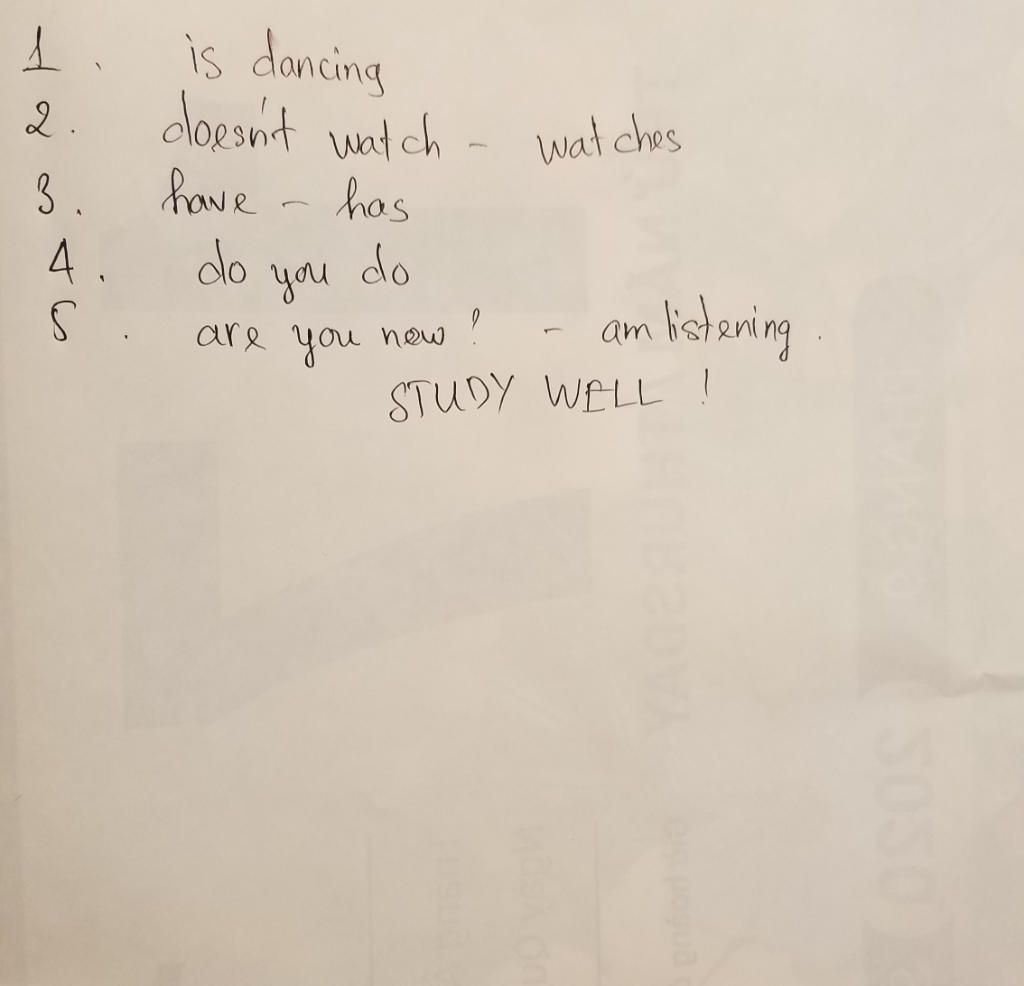 1. is dancing
2. doesn't watch - watches
3. have - has
4. do you do
5. are you new? - am listening.
STUDY WELL!
THURSDAY
2020